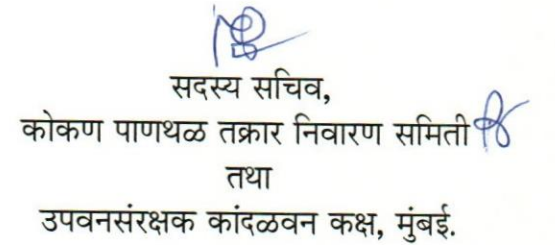 सदस्य सचिव,
कोकण पाणथळ तक्रार निवारण समिती
तथा
उपवनसंरक्षक कांदळवन कक्ष, मुंबई.